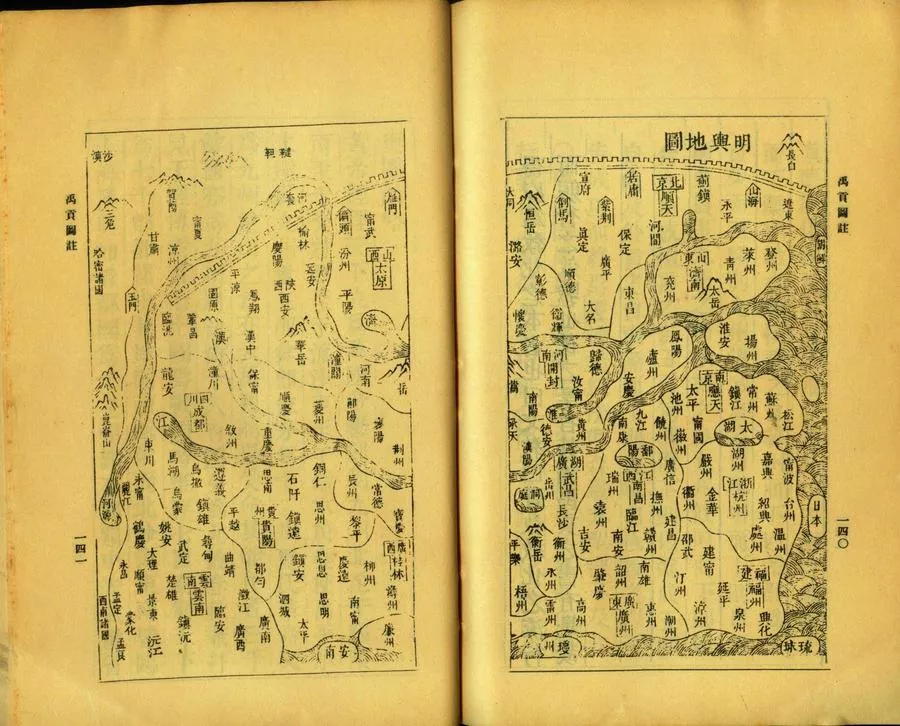 明輿地圖
長白
遼東
山海
永平
薊鎮
北京
順天
居庸
宣府
紫荊
倒馬
恒岳
大同
朝鮮
登州
萊州
青州
山東
濟南
太岳
兗州
東昌
河間
保定
真定
廣平
順德
大名
彰德
衛輝
懷慶
潞安
揚州
淮安
鳳陽
廬州
安慶
歸德
汝甯
河南
開封
南陽
淮
南京
應天
鎮江
常州
蘇州
松江
太平
池州
甯國
徽州
太湖
湖州
嘉興
浙江
杭州
嚴州
甯波
紹興
台州
金華
衢州
處州
溫州
日本
九江
南康
饒州
鄱陽
廣信
江西
南昌
瑞州
撫州
臨江
建昌
袁州
吉安
贛州
南安
黃州
德安
漢陽
湖廣
武昌
岳州
洞庭
長沙
衡岳
衡州
永州
承天
邵武
建甯
福建
福州
延平
汀州
漳州
泉州
興化
南雄
韶州
肇慶
廣東
廣州
惠州
潮州
高州
雷州
梧州
平樂
瓊州
琉球
禹貢圖註
一四〇
韃靼
沙漠
三危
哈密諸國
玉門
崑崙山
河源
賀蘭
甘肅
涼州
甯夏
河套
榆林
延安
慶陽
平涼
固原
鳳翔
陝西
西安
臨洮
鞏昌
漢
漢中
華岳
潼關
偏頭
甯武
雁門
汾州
山西
太原
平陽
濟
河南
岳
龍安
潼川
保甯
順慶
夔州
鄖陽
襄陽
荊州
四川
成都
江
敘州
重慶
馬湖
烏撒
烏蒙
遵義
鎮雄
思南
石阡
銅仁
思州
鎮遠
黎平
貴州
貴陽
平越
都勻
鎮安
辰州
常德
寶慶
廣西
桂林
柳州
慶遠
思恩
思明
南甯
潯州
廉州
太平
泗城
安南
永甯
鶴慶
姚安
大理
武定
尋甸
曲靖
雲南
雲南
楚雄
順甯
景東
永昌
蒙化
鎮沅
沅江
臨安
澂江
廣南
廣西
孟定
孟艮
西南諸國
禹貢圖註
一四一